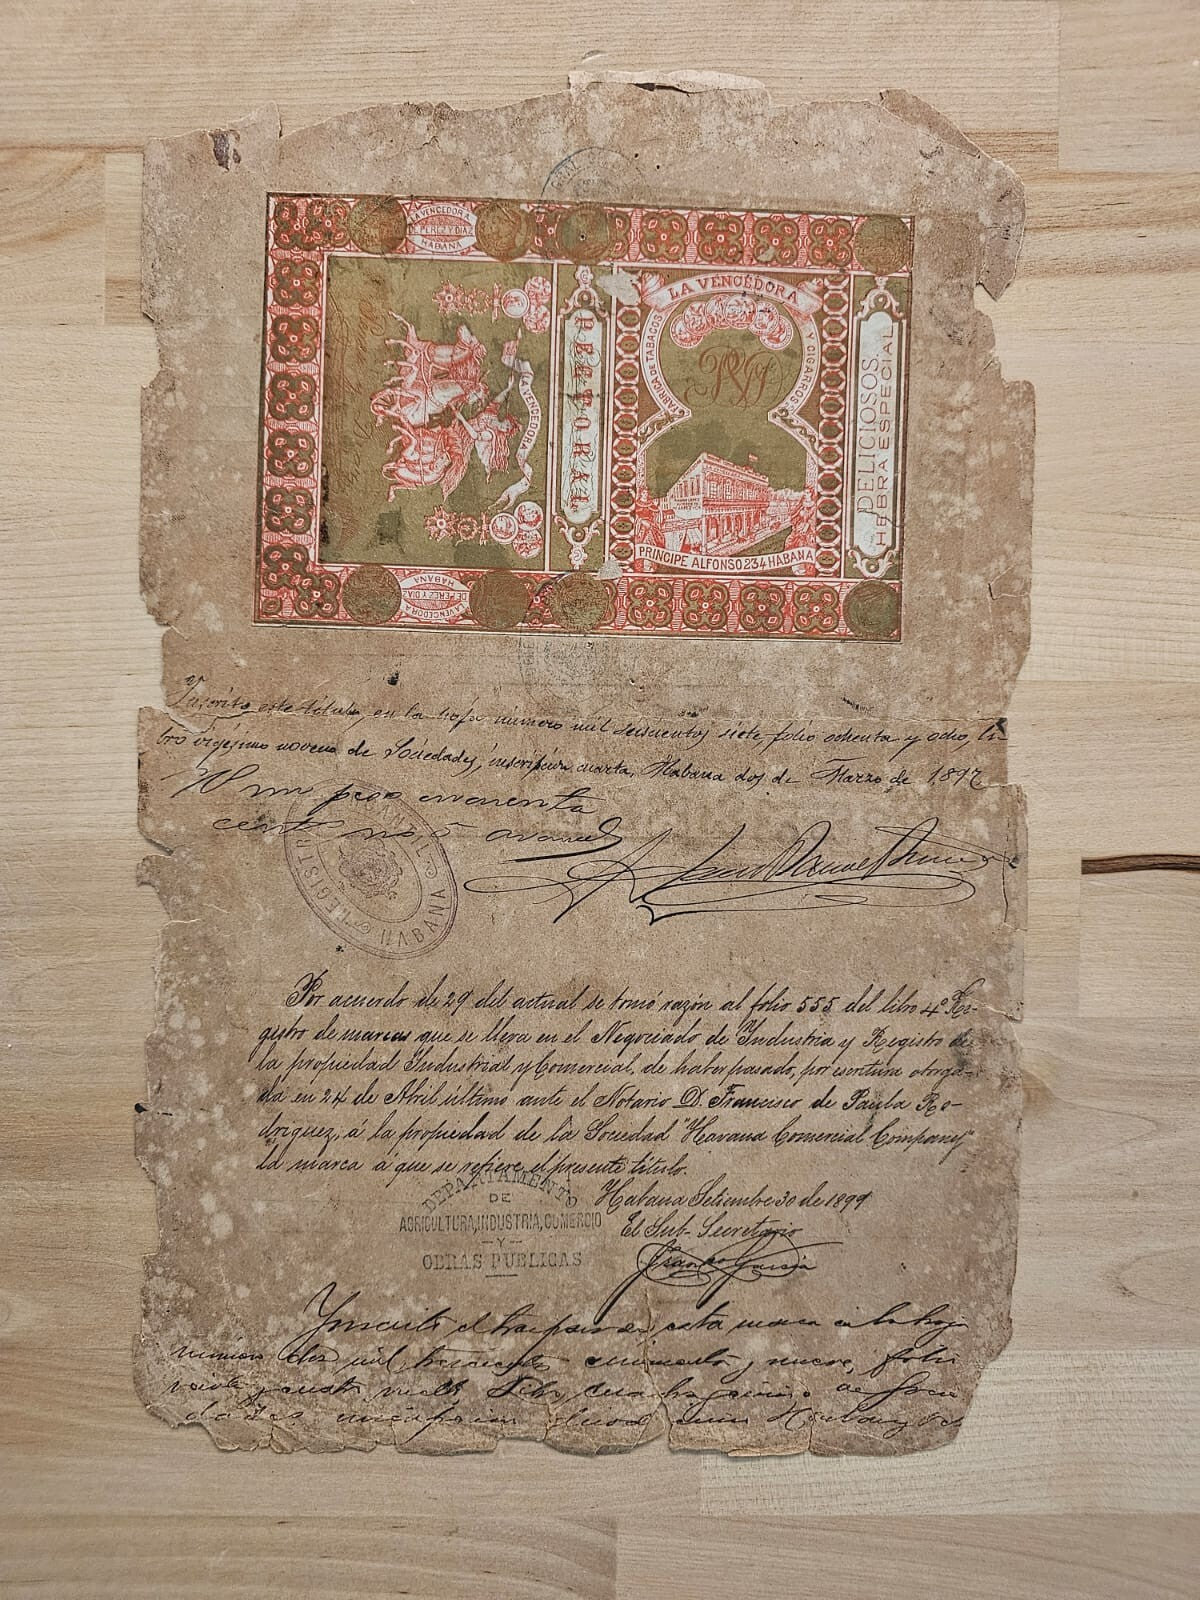 LA VENCEDORA
DE PEREZ Y DIAZ
HABANA
LA VENCEDORA
PECTORAL
LA VENCEDORA
FABRICA DE TABACOS
Y CIGARROS
PRINCIPE ALFONSO 234 HABANA
DELICIOSOS.
HEBRA ESPECIAL
LA VENCEDORA
DE PEREZ Y DIAZ
HABANA
GRAL
Inscrito este título, en la hoja número mil seiscientos siete folio ochenta y ocho, li-
bro vigésimo noveno de Sociedades, inscripción cuarta, Habana dos de Marzo de 1897
un peso cincuenta
cent
REGISTRO MERCANTIL
HABANA
Por acuerdo de 29 del actual se tomó razón al folio 555 del libro 4º Re-
gistro de marcas que se lleva en el Negociado de Industria y Registro de
la propiedad Industrial y Comercial, de haber pasado, por escritura otorga-
da en 24 de Abril último ante el Notario D. Francisco de Paula Ro-
driguez, á la propiedad de la Sociedad "Havana Comercial Company"
la marca á que se refiere el presente título.
Habana Setiembre 30 de 1899
El Sub-Secretario
DEPARTAMENTO
DE
AGRICULTURA, INDUSTRIA, COMERCIO
-Y-
OBRAS PUBLICAS
esta marca en la hoja
número dos mil trescientos cincuenta y nueve, folio
veinte y cuatro